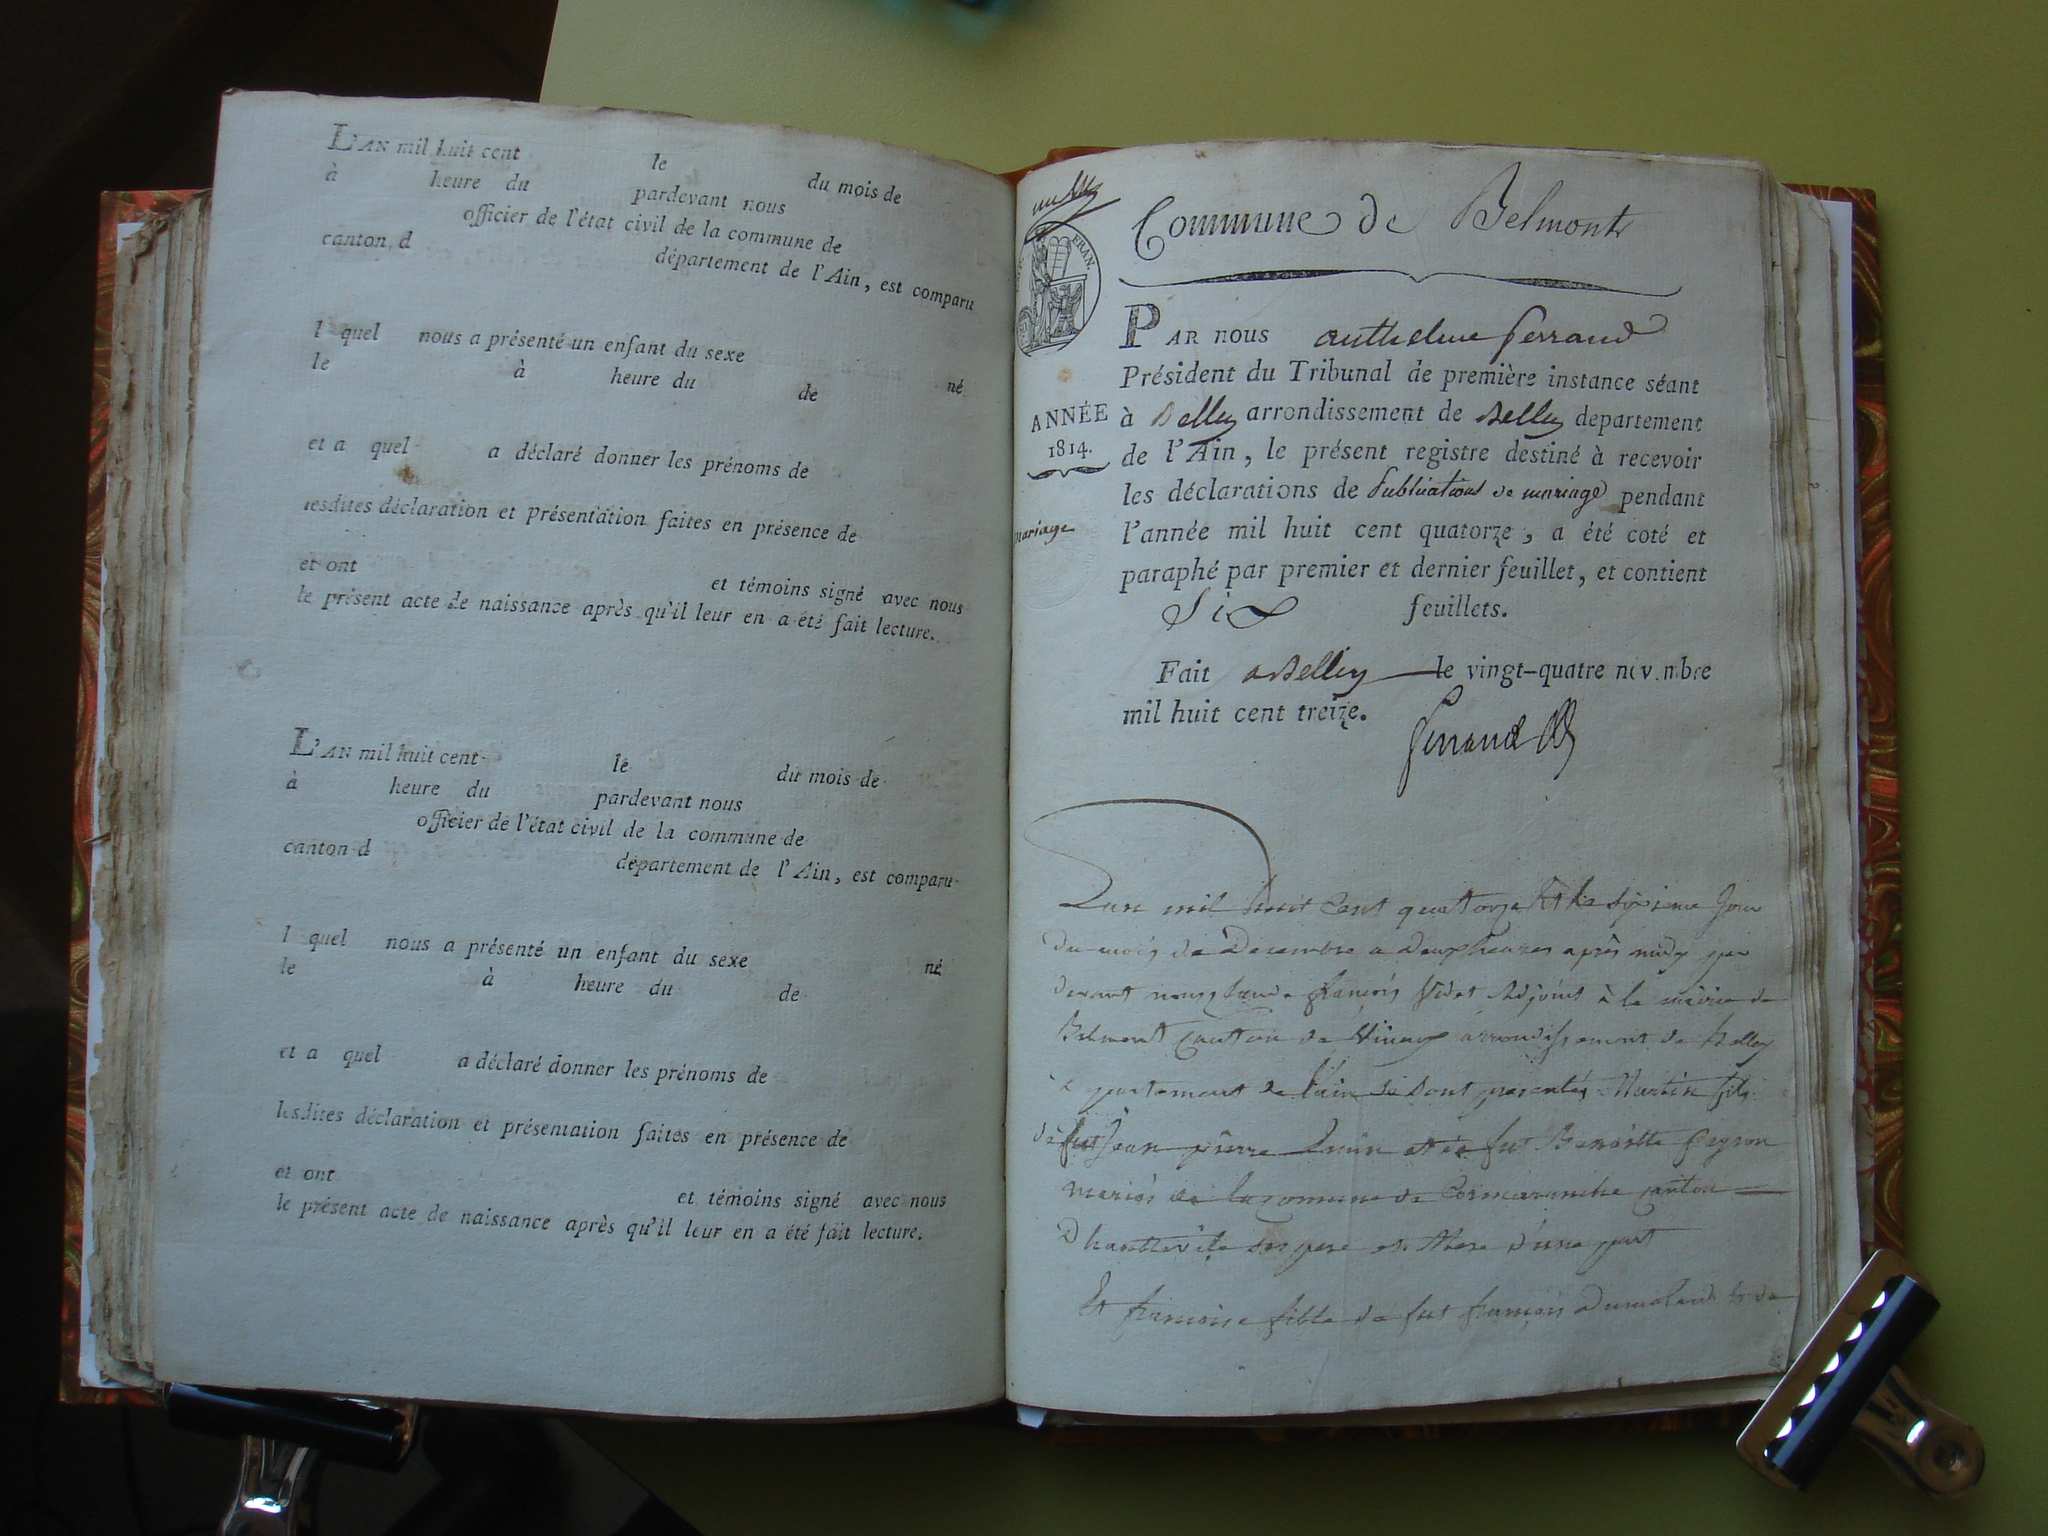 L'AN mil huit cent le du mois de
à heure du pardevant nous
officier de l'état civil de la commune de
canton d département de l'Ain, est comparu
l quel nous a présenté un enfant du sexe né
le à heure du de
et a quel a déclaré donner les prénoms de
lesdites déclaration et présentation faites en présence de
et ont et témoins signé avec nous
le présent acte de naissance après qu'il leur en a été fait lecture.
L'AN mil huit cent le du mois de
à heure du pardevant nous
officier de l'état civil de la commune de
canton d département de l'Ain, est comparu
l quel nous a présenté un enfant du sexe né
le à heure du de
et a quel a déclaré donner les prénoms de
lesdites déclaration et présentation faites en présence de
et ont et témoins signé avec nous
le présent acte de naissance après qu'il leur en a été fait lecture.
Commune de Belmont
FRAN.
PAR NOUS anthelme ferrand
Président du Tribunal de première instance séant
ANNÉE
1814.
à Belley arrondissement de Belley departement
de l'Ain, le présent registre destiné à recevoir
les déclarations de Publications de mariage pendant
mariage
l'année mil huit cent quatorze, a été coté et
paraphé par premier et dernier feuillet, et contient
Six feuillets.
Fait a Belley le vingt-quatre novembre
mil huit cent treize.
ferrand
Lan mil huit Cent quatorze Et le sixieme Jour
du mois de Decembre a deux heures après midy par
devant nous Claude françois Vidot Adjoint à la mairie de
Belmont Canton de arrondissement de Belley
partement de l'ain Se Sont presentés Martin fils
de fut Jean pierre et de fut Benoitte peyron
Mariés de la commune de Cormaranche canton
D'hautteville Ses pere et Mere d'une part
Et francoise fille de fut françois